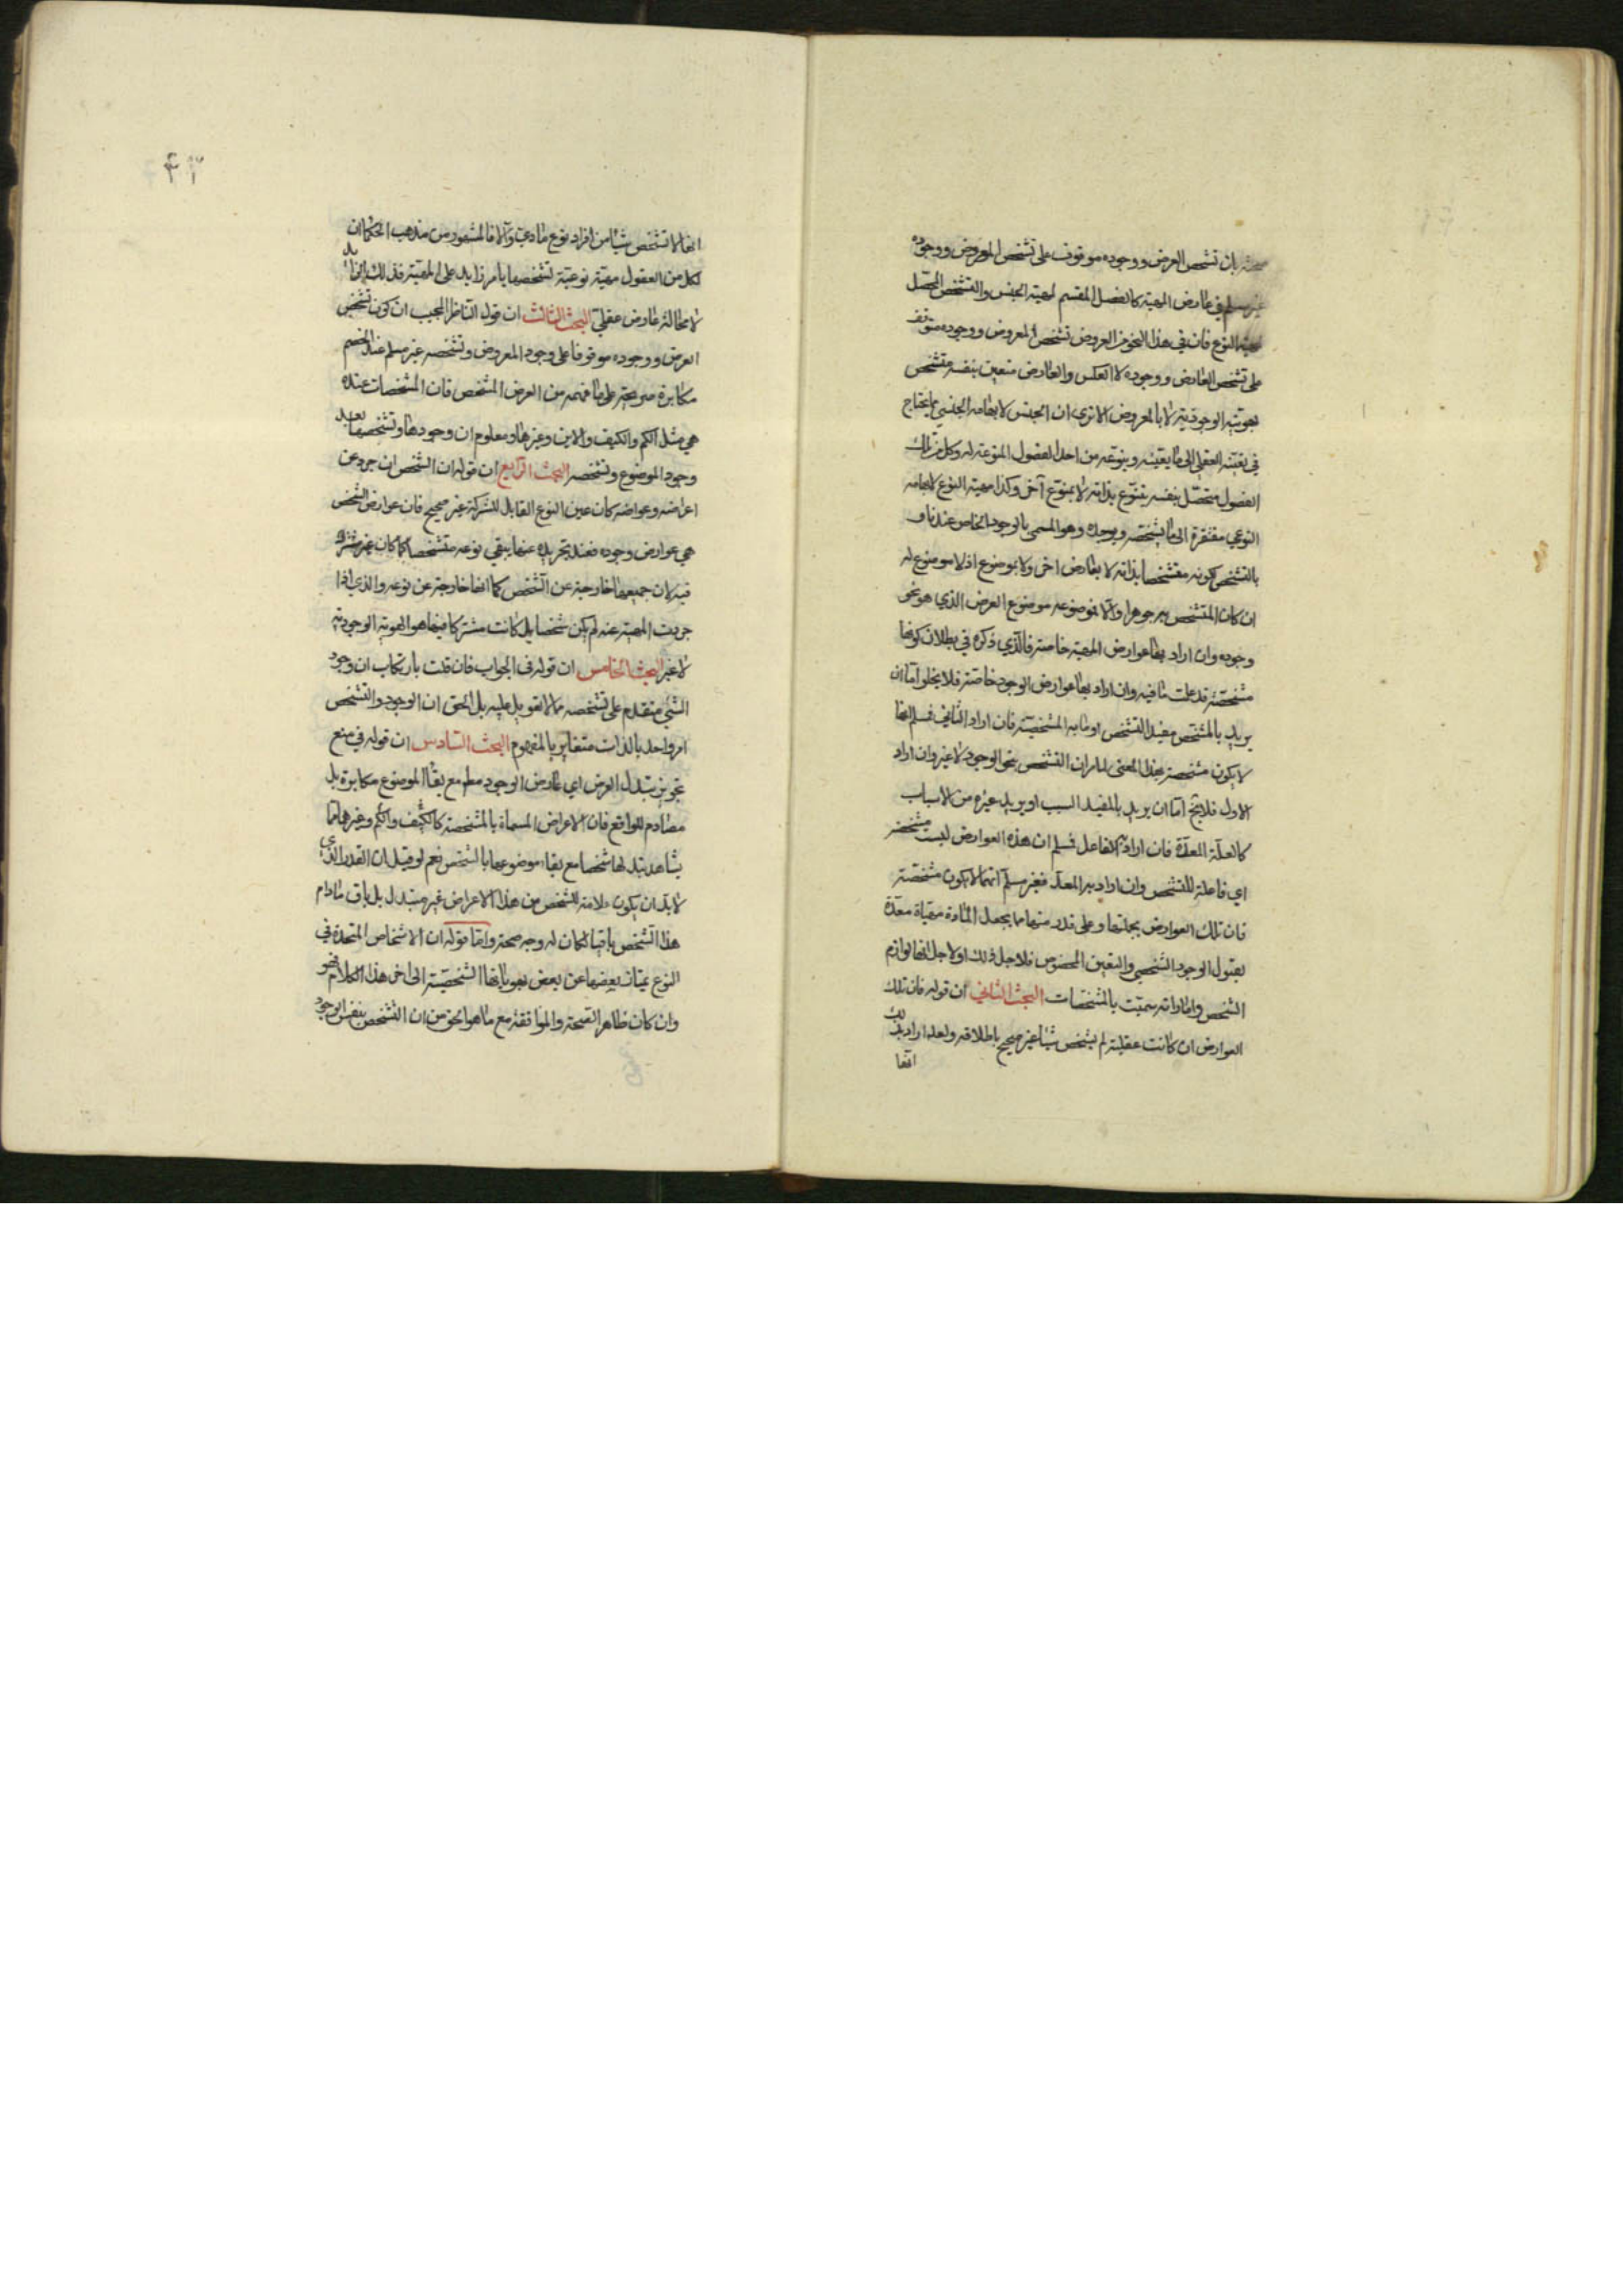 صحته بان تشخص العرض ووجوده موقوف على تشخص المعروض ووجوده
غير مسلم في عارض المهية كالفصل المقسم لمهية الجنس والتشخص المحصل
لمهية النوع فان في هذا النحو من العروض تشخص المعروض ووجوده متوقف
على تشخص العارض ووجوده لا العكس والعارض متعين بنفسه متشخص
بهويته الوجودية لا بالمعروض الا ترى ان الجنس لابهامه الجنسي يحتاج
في تعينه العقلي الى ما يعينه وينوعه من احد الفصول المنوعة له وكل من تلك
الفصول متحصل بنفسه متنوع بذاته لا بمنوع آخر وكذا مهية النوع لابهامه
النوعي مفتقرة الى ما يشخصه ويوجده وهو المسمى بالوجود الخاص عندنا و
بالتشخص لكونه متشخصا بذاته لا بعارض اخر ولا بموضوع اذ لا موضوع له
ان كان المتشخص به جوهرا والا فموضوعه موضوع العرض الذي هو نحو
وجوده وان اراد بها عوارض المهية خاصة فالذي ذكره في بطلان كونها
مشخصة قد علمت ما فيه وان اراد بها عوارض الوجود خاصة فلا يخلو اما ان
يريد بالمشخص مفيد التشخص او ما به المشخصية فان اراد الثاني فمسلم انها
لا يكون مشخصة بهذا المعنى لما مر ان التشخص بنحو الوجود لا غير وان اراد
الاول فلا يخ اما ان يريد بالمفيد السبب او يريد غيره من الاسباب
كالعلة المعدة فان اراد به الفاعل فمسلم ان هذه العوارض ليست مشخصة
اي فاعلة للتشخص وان اراد به المعد فغير مسلم انها لا يكون مشخصة
فان تلك العوارض بجملتها وعلى قدر منها مما يجعل المادة مهياة معدة
لقبول الوجود الشخصي والتعين المخصوص فلاجل ذلك او لاجل انها لوازم
الشخص واماراته سميت بالمشخصات البحث الثاني ان قوله فان تلك
العوارض ان كانت عقلية لم يشخص شيئا غير صحيح باطلاقه ولعله اراد بذلك
انها
۴۳
انها لا تشخص شيئا من افراد نوع مادي والا فالمشهور من مذهب الحكماء ان
لكل من العقول مهية نوعية تشخصها بامر زايد على المهية فذلك الزايد
لا محالة عارض عقلي البحث الثالث ان قول الناظر المجيب ان كون تشخص
العرض ووجوده موقوفا على وجود المعروض وتشخصه غير مسلم عند الخصم
مكابرة صريحة على ما فهمه من العرض المشخص فان المشخصات عنده
هي مثل الكم والكيف والاين وغيرها ومعلوم ان وجودها وتشخصها بعد
وجود الموضوع وتشخصه البحث الرابع ان قوله ان الشخص ان جرد عن
اعراضه وعوارضه كان عين النوع القابل للشركة غير صحيح فان عوارض الشخص
هي عوارض وجوده فعند تجريده عنها يبقي نوعه متشخصا كما كان غير مشترك
فيه لان جميعها خارجة عن الشخص كما انها خارجة عن نوعه والذي اذا
جردت المهية عنه لم يكن شخصا بل كانت مشتركا فيها هو الهوية الوجودية
لا غير البحث الخامس ان قوله في الجواب فان قلت بارتكاب ان وجود
الشئ متقدم على تشخصه مما لا تعويل عليه بل الحق ان الوجود والتشخص
امر واحد بالذات متغاير بالمفهوم البحث السادس ان قوله في منع
تجويز تبدل العرض اي عارض الوجود معلم مع بقاء الموضوع مكابرة بل
مصادم للواقع فان الاعراض المسماة بالمشخصة كالكيف والكم وغيرهما مما
يشاهد تبدلها شخصا مع بقاء موضوعها بالشخص نعم لو قيل ان القدر الذي
لا بد ان يكون علامة للشخص من هذا الاعراض غير متبدل بل باق مادام
هذا الشخص باقيا لكان له وجه صحة واما قوله ان الاشخاص المتحدة في
النوع يمتاز بعضها عن بعض بهوياتها الشخصية الى اخر هذا الكلام فهو
وان كان ظاهر الصحة والموافقة مع ما هو الحق من ان التشخص بنفس الوجود